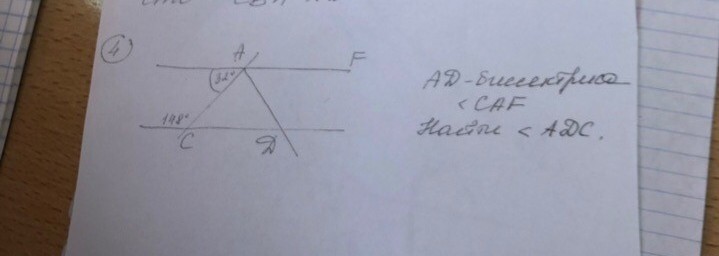 4
A
F
32°
148°
C
D
AD-биссектриса
< CAF
Найти < ADC.